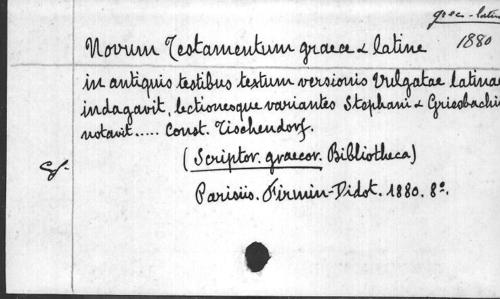 graec - latin
1880
Novum Testamentum graece & latine
in antiquis testibus textum versionis Vulgatae latinae
indagavit, lectionesque variantes Stephani & Griesbachii
notavit..... Const. Tischendorf.
(Scriptor. graecor. Bibliotheca)
Parisiis. Firmin-Didot. 1880. 8º.